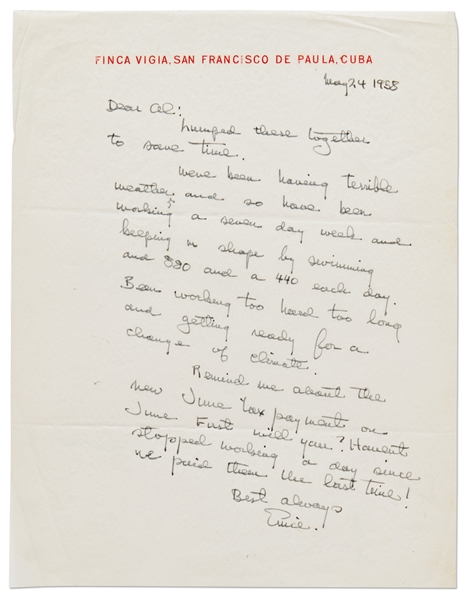 FINCA VIGIA, SAN FRANCISCO DE PAULA, CUBA
May 24 1958
Dear Al:
Lumped these together
to save time.
Weve been having terrible
weather and so have been
working a seven day week and
keeping in shape by swimming
and 880 and a 440 each day.
Been working too hard too long
and getting ready for a
change of climate.
Remind me about the
new June Tax payment on
June First will you? Havent
stopped working a day since
we paid them the last time!
Best always
Ernie.